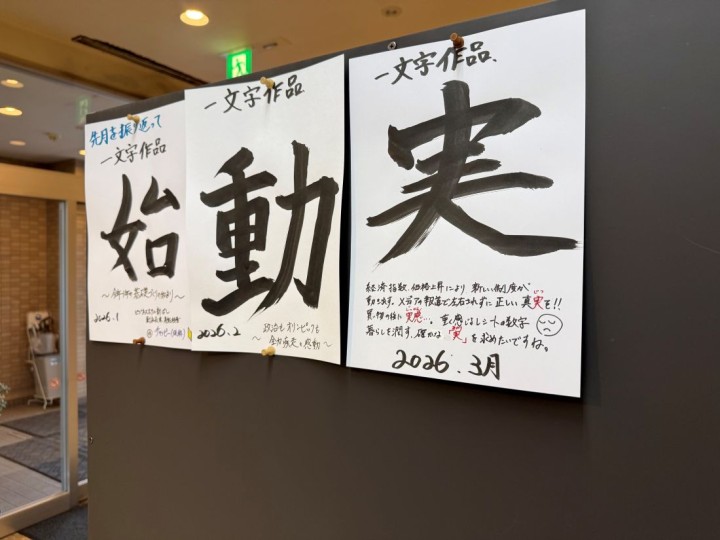 先月を振り返って
一文字作品
始
2026.1
一文字作品
動
2026.2
政治もオリンピックも
一文字作品.
実
経済指数、価格上昇により 新しい制度が
動き出す。メディア報道で左右されずに 正しい 真実を!!
買い物の後に 実感…。重く感じるレシートの数字
暮らしを潤す、確かな「実」を求めたいですね。
2026.3月